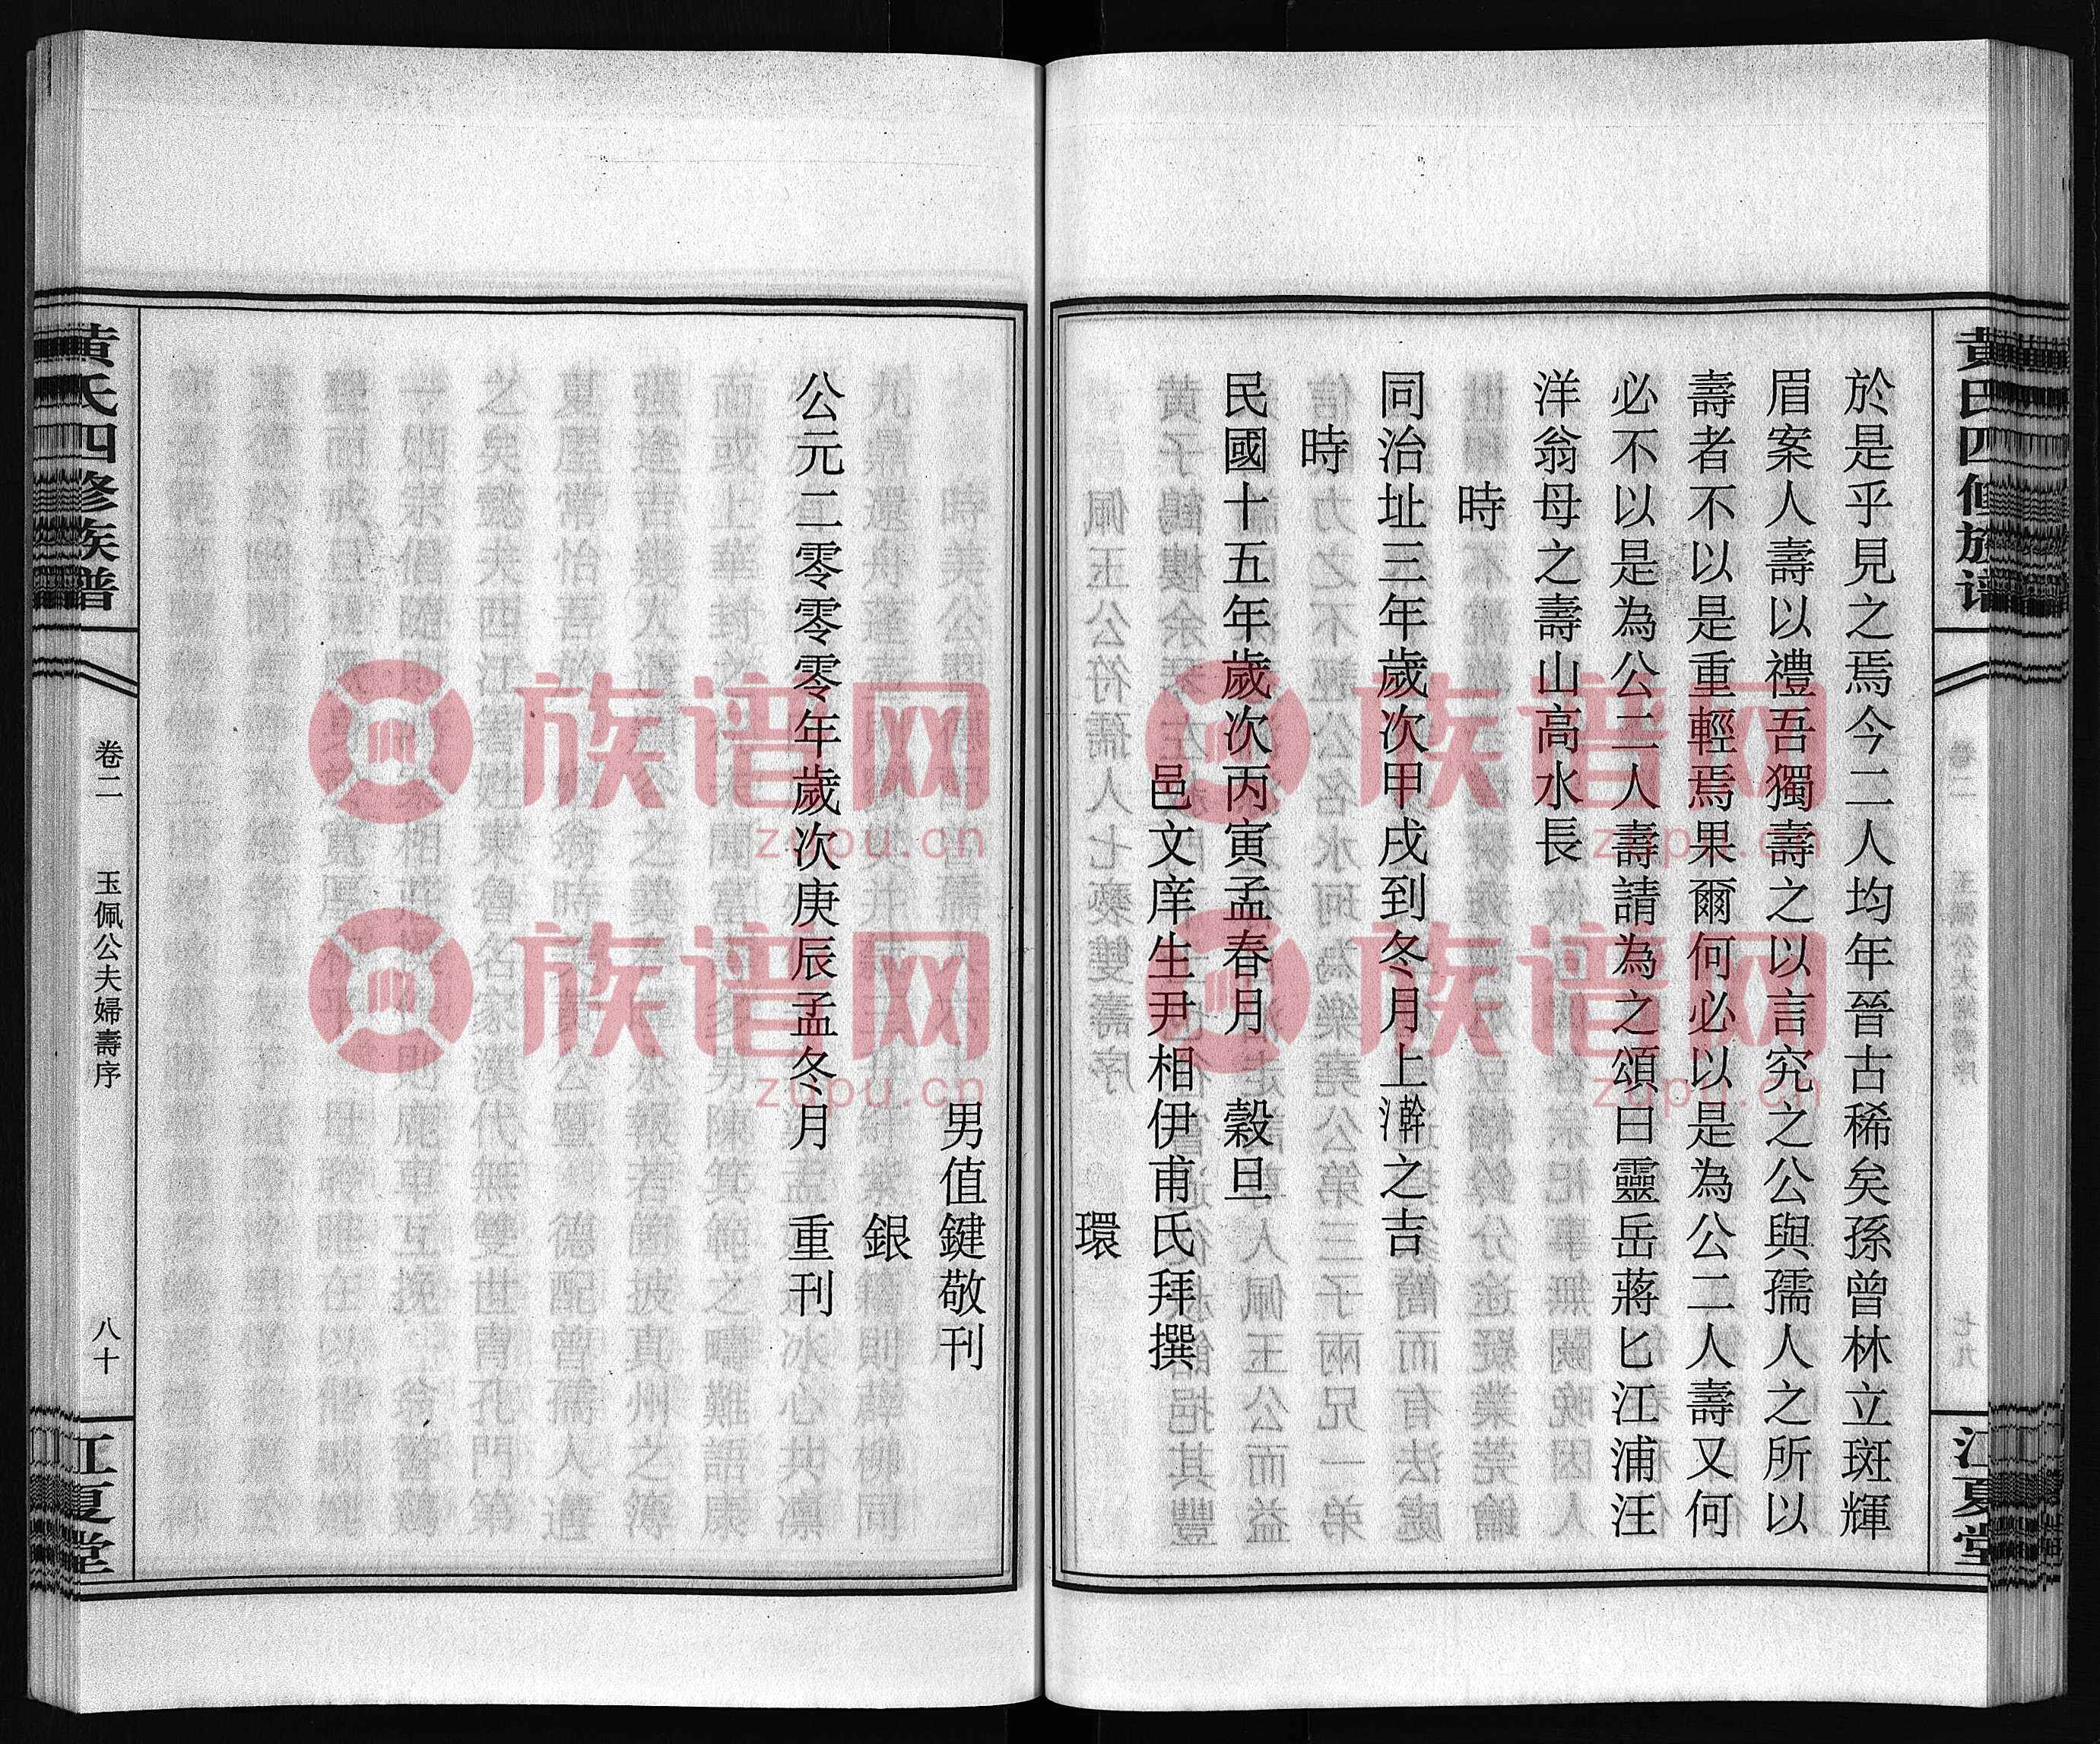 於是乎見之焉今二人均年晉古稀矣孫曾林立斑輝
眉案人壽以禮吾獨壽之以言究之公與孺人之所以
壽者不以是重輕焉果爾何必以是為公二人壽又何
必不以是為公二人壽請為之頌曰靈岳蔣匕江浦汪
洋翁母之壽山高水長
時
同治址三年歲次甲戌到冬月上澣之吉
時
民國十五年歲次丙寅孟春月 穀旦
邑文庠生尹相伊甫氏拜撰
環
男值鍵敬刊
銀
公元二零零零年歲次庚辰孟冬月 重刊
黃氏四修族譜
卷二 玉佩公夫婦壽序
八十
江夏堂
黃氏四修族譜
江夏堂
族谱网
zupu.cn
族谱网
zupu.cn
族谱网
zupu.cn
族谱网
zupu.cn